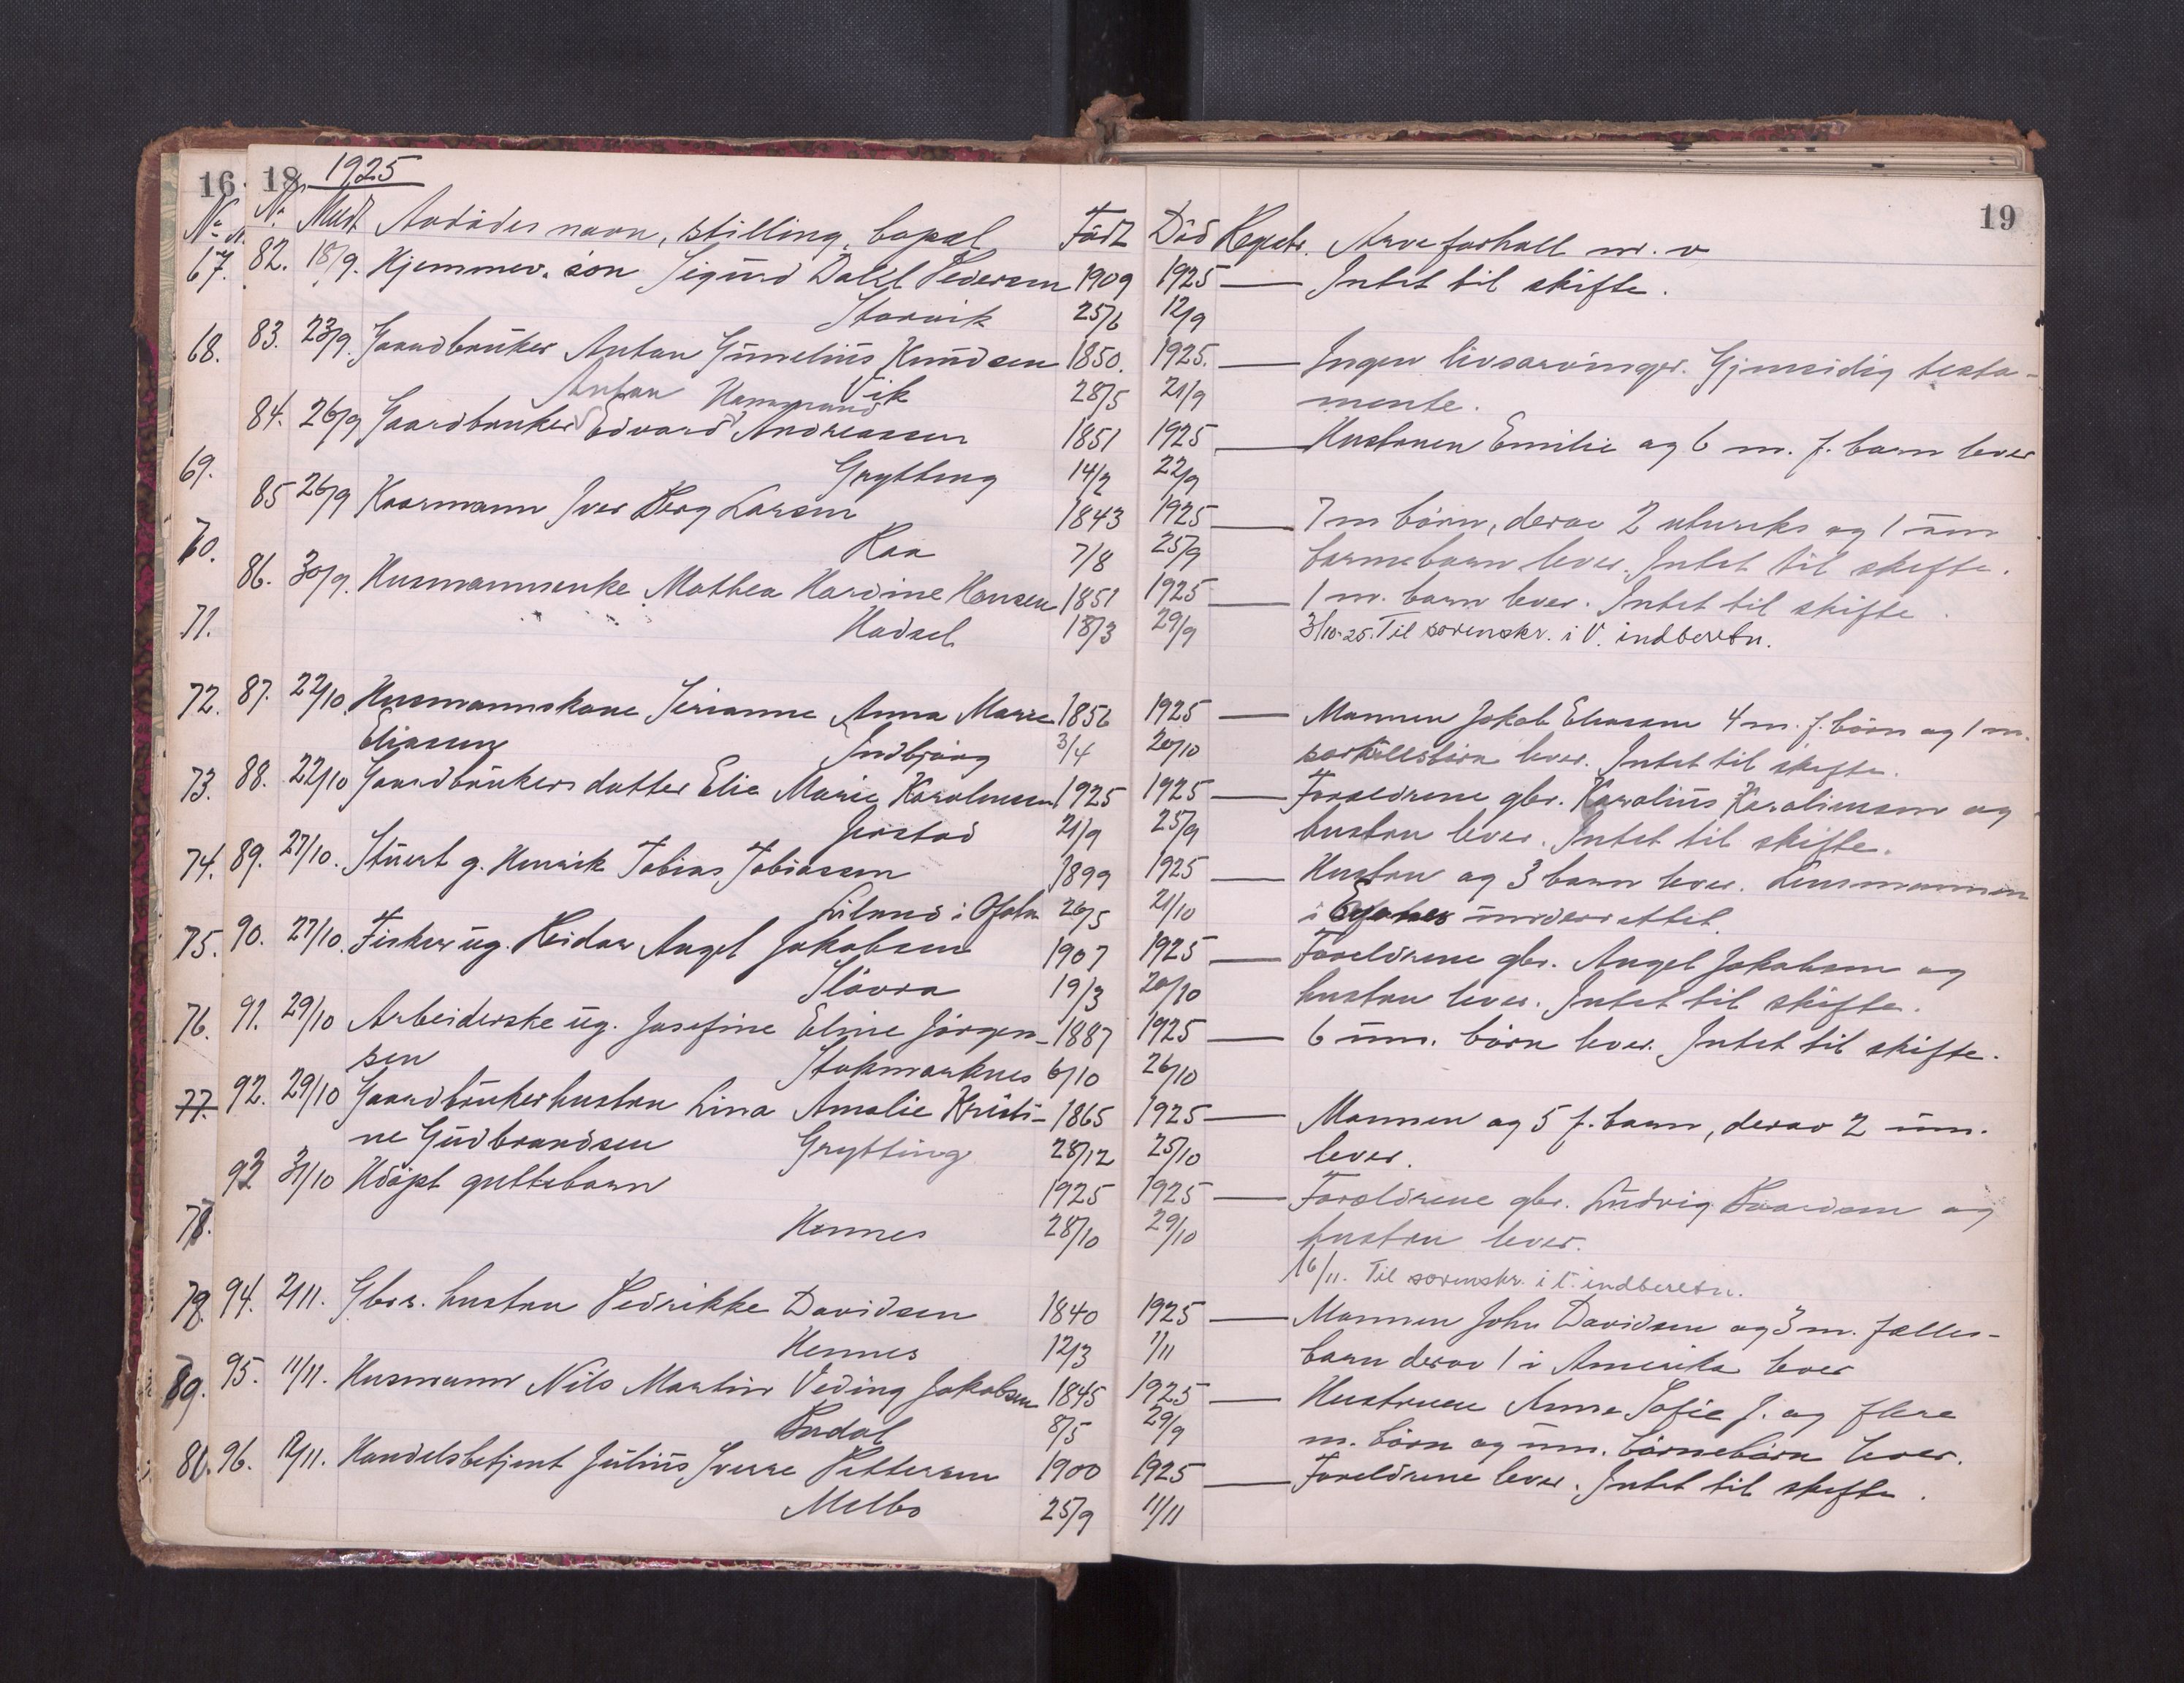 16 18 1925
19
No No Medt Avdødes navn, stilling, bopæl Født Død Repetr. Arveforhold m. v
67. 82. 18/9. Hjemmev. søn Sigurd Dahl Pedersen 1909 1925 — Intet til skifte.
Storvik 25/6 12/9
68. 83. 23/9. Gaardbruker Anton Gunelius Knudsen 1850. 1925. — Ingen livsarvinger. Gjensidig testa-
Vik 28/5 21/9 mente.
Anton Hammund
84. 26/9 Gaardbruker Edvard Andreassen 1851 1925 — Hustruen Emilie og 6 m. f. barn lever
69. Grytting 14/2 22/9
85 26/9 Kaarmann Iver Berg Larsen 1843 1925 — 7 m børn, derav 2 utenriks og 1 um
70. Raa 7/8 25/9 barnebarn lever. Intet til skifte.
86. 30/9. Husmannsenke Mathea Hardine Hansen 1851 1925 — 1 m. barn lever. Intet til skifte.
71. Hadsel 18/3 29/9 3/10-25. Til sorenskr. i V. indberetn.
72. 87. 22/10 Husmannskone Jerianne Anna Marie 1856 1925 — Mannen Jakob Eliassen 4 m. f. børn og 1 m.
Eliassen Indbjörg 3/4 20/10 særkullsbarn lever. Intet til skifte.
73. 88. 22/10 Gaardbrukers datter Elie Marie Karoliussen 1925 1925 — Forældrene gbr. Karolius Karoliussen og
Jerstad 21/9 25/9 hustru lever. Intet til skifte.
74. 89. 27/10. Stuert g. Henrik Tobias Tobiassen 1899 1925 — Hustru og 3 barn lever. Lensmannen
Liland i Ofoten 26/5 21/10 i underrettet.
75. 90. 27/10. Fisker ug. Reidar Angel Jakobsen 1907 1925 — Foreldrene gbr. Angel Jakobsen og
19/3 20/10 hustru lever. Intet til skifte.
76. 91. 29/10 Arbeiderske ug. Josefine Eline Jørgen- 1887 1925 — 6 um. børn lever. Intet til skifte.
sen Stokmarknes 6/10 26/10
77. 92. 29/10 Gaardbrukerhustru Lina Amalie Kristi- 1865 1925 — Mannen og 5 f. barn, derav 2 um.
ne Gudbrandsen Grytting 28/12 25/10 lever.
93 31/10 Udøpt guttebarn 1925 1925 — Foreldrene gbr. Ludvig Baardsen og
78. Hennes 28/10 29/10 hustru lever.
16/11. Til sorenskr. i V. indberetn.
79. 94. 2/11. Gbrs. hustru Pedrikke Davidsen 1840 1925 — Mannen John Davidsen og 3 m. felles-
Hennes 12/3 1/11 barn derav 1 i Amerika lever
89. 95. 11/11. Husmann Nils Martin Veding Jakobsen 1845 1925 — Hustruen Anna Sofie J. og flere
Budal 8/5 29/9 m. børn og um. børnebørn lever.
81. 96. 12/11. Handelsbetjent Julius Sverre Pettersen 1900 1925 — Foreldrene lever. Intet til skifte.
Melbo 25/9 11/11